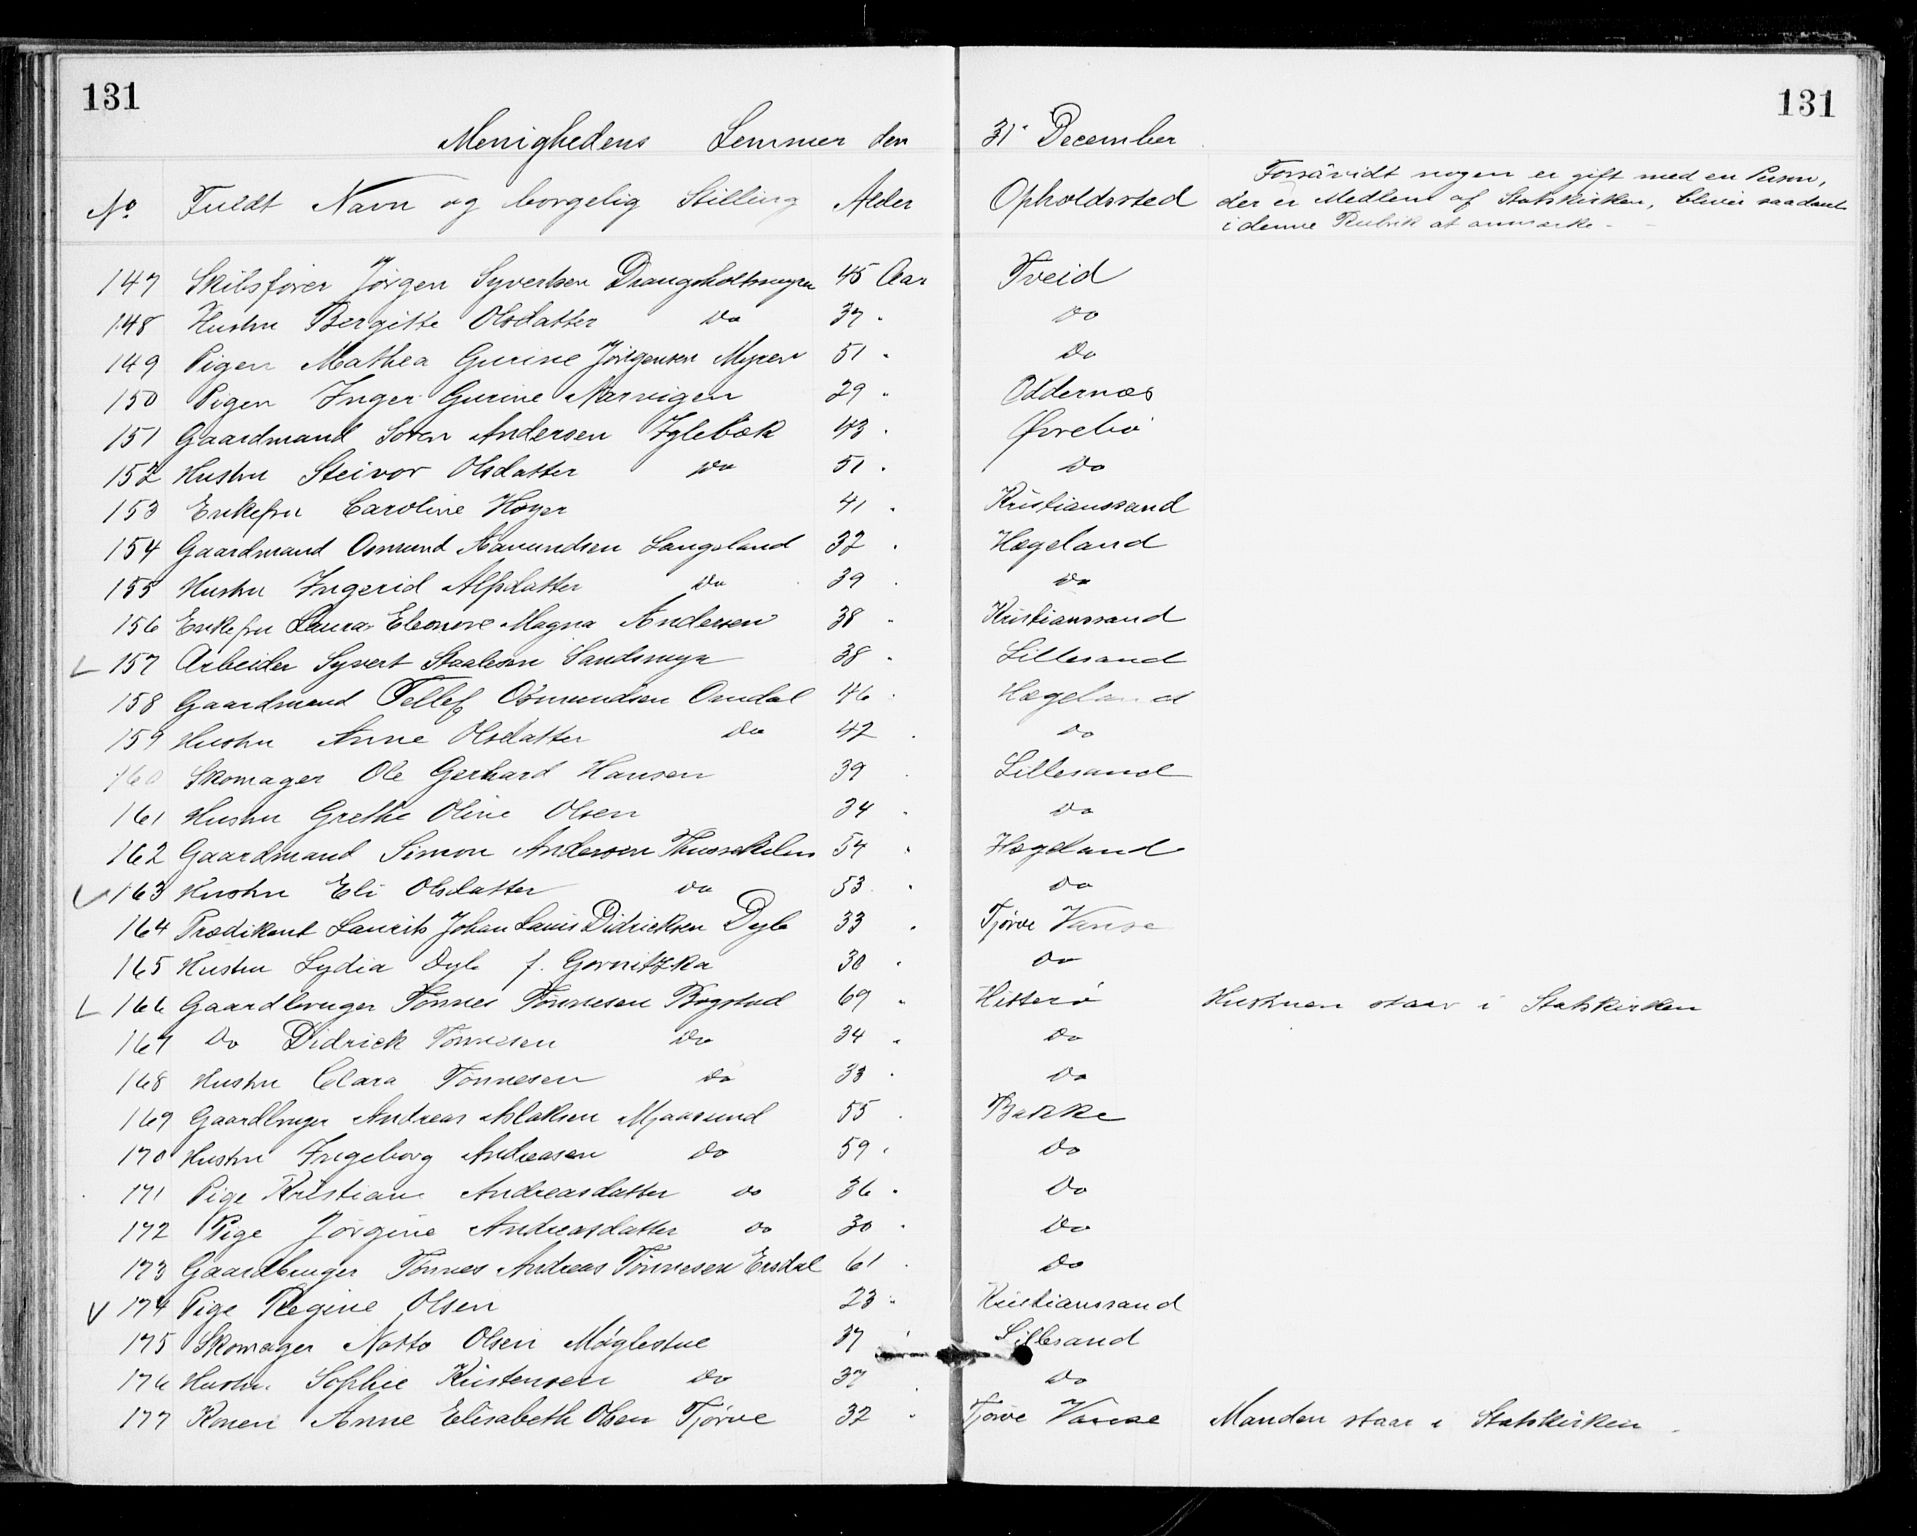 131 131
Menighedens Lemmer den 31' December
No Fuldt Navn og borgelig Stilling Alder Opholdssted Forsåvidt nogen er gift med en Person,
der er Medlem af Statskirken, bliver saadant
i denne Rubrik at anmærke -
147 Skibsfører Jørgen Syvertsen Drangsholtsmyra 45 Aar Tveid
148 Hustru Bergitte Olsdatter Do 37 " Do
149 Pigen Mathea Gurine Jörgensen Myren 51 " Do
150 Pigen Inger Gurine Narvigen 29 " Oddernæs
151 Gaardmand Soren Andersen Iglebæk 43 " Øvrebö
152 Hustru Steivor Olsdatter Do 51 " Do
153 Enkefru Caroline Høyer 41 " Kristianssand
154 Gaardmand Osmund Aavundsen Langeland 32 " Hægeland
155 Hustru Ingerid Alfsdatter Do 39 " Do
156 Enkefru Laura Eleonore Magna Andersen 38 " Kristianssand
157 Arbeider Syvert Staalesen Sandsmyr 38 " Lillesand
158 Gaardmand Tellef Osmundsen Omdal 46 " Hægeland
159 Hustru Anne Olsdatter Do 42 " Do
160 Skomager Ole Gerhard Hansen 39 " Lillesand
161 Hustru Grethe Oline Olsen 34 " Do
162 Gaardmand Simon Andersen 54 " Hægeland
163 Hustru Eli Olsdatter Do 53 " Do
164 Prædikent Laurits Johan Lauis Didricksen Dyb 33 " Tjörve Vanse
165 Hustru Lydia Dyb f. Gornitzka 30 " Do
166 Gaardbruger Tönnes Tönnesen Bogstad 69 " Hitterö Hustruen staar i Statskirken
167 Do Didrick Tönnesen Do 34 " Do
168 Hustru Clara Tönnesen Do 33 " Do
169 Gaardbruger Andreas Aslaksen Mjaasund 55 " Bakke
170 Hustru Ingeborg Andreasen Do 59 " Do
171 Pige Kristiane Andreasdatter Do 36 " Do
172 Pige Jörgine Andreasdatter Do 30 " Do
173 Gaardbruger Tönnes Andreas Tönnesen Ersdal 61 " Do
174 Pige Regine Olsen 23 " Kristianssand
175 Skomager Natto Olsen Möglestue 37 " Lillesand
176 Hustru Sophie Kristensen Do 37 " Do
177 Konen Anne Elisabeth Olsen Tjörve 32 " Tjörve Vanse Manden staar i Statskirken